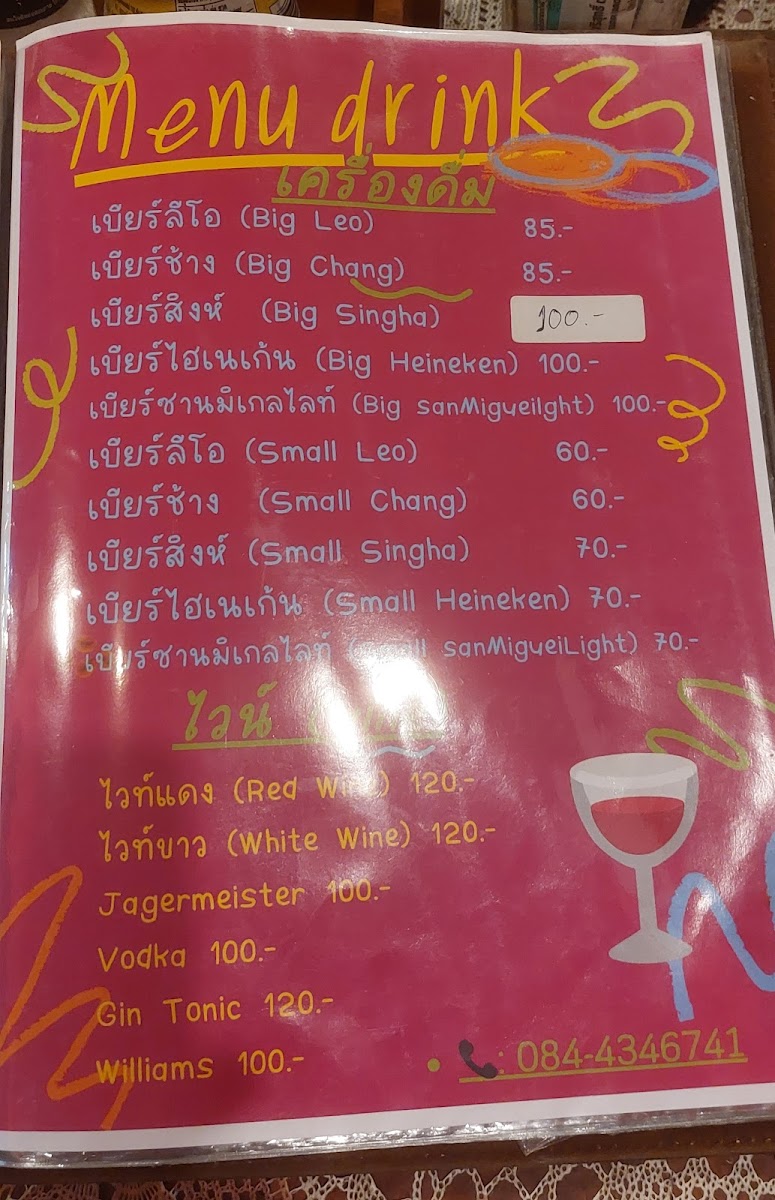 Menu drink
เครื่องดื่ม
เบียร์ลีโอ (Big Leo) 85.-
เบียร์ช้าง (Big Chang) 85.-
เบียร์สิงห์ (Big Singha) 100.-
เบียร์ไฮเนเก้น (Big Heineken) 100.-
เบียร์ซานมิเกลไลท์ (Big sanMigueilght) 100.-
เบียร์ลีโอ (Small Leo) 60.-
เบียร์ช้าง (Small Chang) 60.-
เบียร์สิงห์ (Small Singha) 70.-
เบียร์ไฮเนเก้น (Small Heineken) 70.-
เบียร์ซานมิเกลไลท์ (Small sanMigueiLight) 70.-
ไวน์
ไวท์แดง (Red Wine) 120.-
ไวท์ขาว (White Wine) 120.-
Jagermeister 100.-
Vodka 100.-
Gin Tonic 120.-
Williams 100.-
: 084-4346741